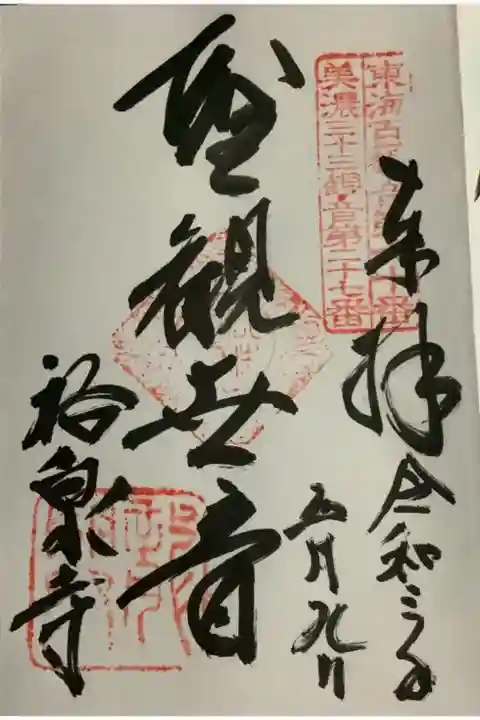 東海百観音第六十番
美濃三十三観音第二十七番
奉拝
令和三年
五月九日
聖観世音
裕泉寺